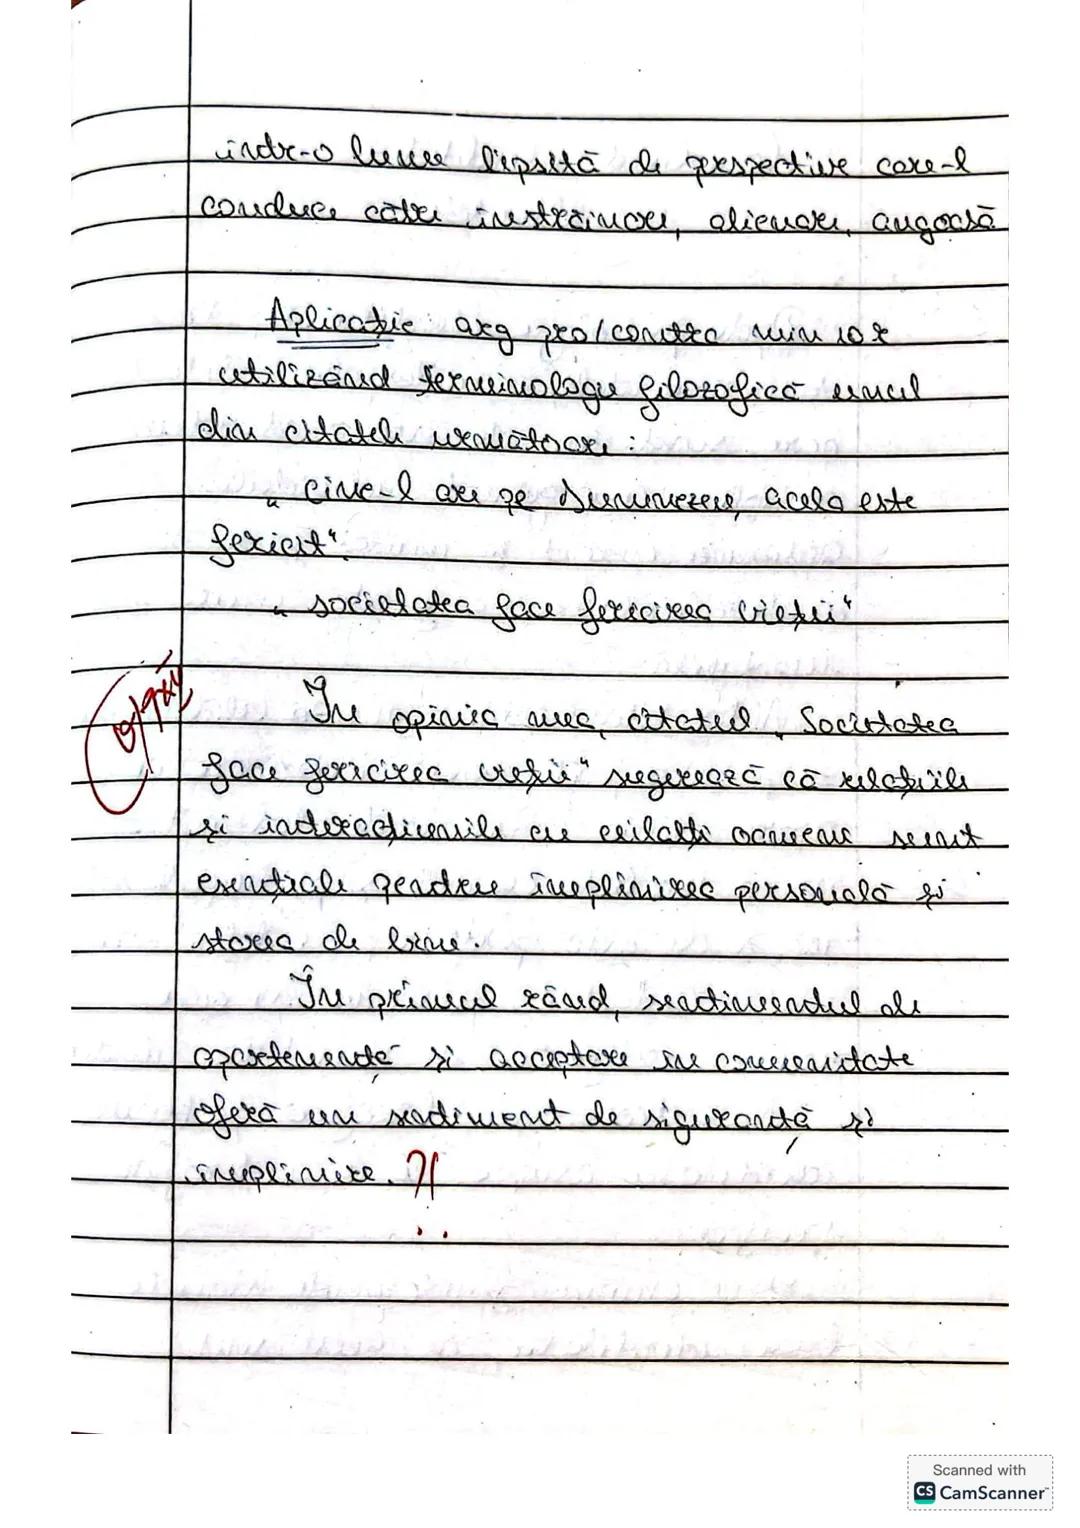 într-o lume lipsită de perspective care-l
conduce către înstrăinare, alienare, angoasă
Aplicație: arg pro/contra min 10 r
utilizând terminologie filozofică unul
din citatele următoare:
„ cine-l are pe Dumnezeu, acela este
fericit“
„ societatea face fericirea vieții“
În opinia mea, citatul „ Societatea
face fericirea vieții“ sugerează că relațiile
și interacțiunile cu ceilalți oameni sunt
esențiale pentru împlinirea personală și
starea de bine.
În primul rând, sentimentul de
apartenență și acceptare în comunitate
oferă un sentiment de siguranță și
împlinire. ?!
Scanned with
CS CamScanner